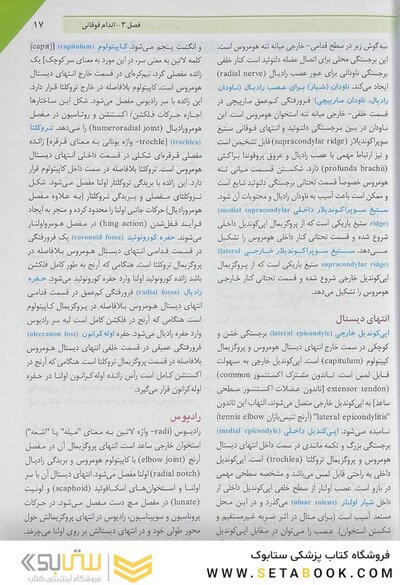 ۱۷
فصل ۳ - اندام فوقانی
سه‌گوش زیر در سطح قدامی- خارجی میانه تنه هومروس است.
این برجستگی محلی برای اتصال عضله دلتوئید است. کنار خلفی
برجستگی ناودانی برای عبور عصب رادیال (radial nerve)
ایجاد می‌کند. ناودان (شیار) برای عصب رادیال (ناودان
رادیال، ناودان مارپیچی) فرورفتگی کم‌عمق مارپیچی در
قسمت خلفی- خارجی میانه تنه استخوان هومروس است. این
ناودان در بین برجستگی دلتوئید و انتهای فوقانی ستیغ
سوپراکوندیلار (supracondylar ridge) قابل تشخیص است
و نیز ارتباط مهمی با عصب رادیال و عروق پروفوندا براکئی
(profunda brachii) دارد. شکستن قسمت میانی تنه
هومروس خصوصاً قسمت تحتانی برجستگی دلتوئید شایع است
و ممکن است باعث آسیب به ناودان رادیال و محتویات آن شود.
ستیغ سوپراکوندیلار داخلی (medial supracondylar
ridge) ستیغ باریکی است که از پروگزیمال اپی‌کوندیل داخلی
شروع شده و قسمت تحتانی کنار داخلی هومروس را تشکیل
می‌دهد. ستیغ سوپراکوندیلار خارجی (lateral
supracondylar ridge) ستیغ باریکی است که از پروگزیمال
اپی‌کوندیل خارجی شروع شده و قسمت تحتانی کنار خارجی
هومروس را تشکیل می‌دهد.
انتهای دیستال
اپی‌کوندیل خارجی (lateral epicondyle) برجستگی خشن و
کوچکی در سمت خارج انتهای دیستال هومروس و پروگزیمال
کپیتولوم (capitulum) است. اپی‌کوندیل خارجی به سهولت
قابل لمس است. تاندون مشترک اکستنسور (common
extensor tendon) [تاندون عضلات اکستنسور سطحی
ساعد] به اپی‌کوندیل خارجی متصل می‌شوند. التهاب این تاندون
"lateral epicondylitis" (آرنج تنیس‌بازان tennis elbow)
نامیده می‌شود. اپی‌کندیل داخلی (medial epicondyle)
برجستگی بزرگ و تکمه مانندی در سمت داخل انتهای دیستال
هومروس و پروگزیمال تروکلئا (trochlea) است. اپی‌کوندیل
داخلی به راحتی قابل لمس می‌باشد و مشخصه سطحی مهمی
در بازو است. عصب اولنار از سطح خلفی اپی‌کوندیل داخلی از
داخل شیار اولنار (ulnar sulcus) می‌گذرد و در این محل
مستعد آسیب است (برای مثال در اثر ضربه غیرمستقیم و
شکستن استخوان). عصب را می‌توان در مقابل اپی‌کوندیل
و انگشت پنجم می‌شود. کاپیتولوم (capitulum) [(capit)
کلمه لاتین به معنی سر، در این مورد به معنای سر کوچک] یک
زائده مفصلی گرد، نیم‌کره‌ای در قسمت خارج انتهای دیستال
هومروس است. کاپیتولوم بلافاصله در خارج تروکلئا قرار دارد.
این زائده با سر رادیوس مفصل می‌شود. شکل این ساختارها
اجازه حرکات فلکشن/ اکستنشن و روتاسیون در مفصل
هومرورادیال (humeroradial joint) را می‌دهد. تروکلئا
(trochlea) [trochle- واژه یونانی به معنای قرقره] زائده
مفصلی قرقره‌ای شکلی در قسمت داخلی انتهای دیستال
هومروس است. تروکلئا بلافاصله در سمت داخل کاپیتولوم قرار
دارد. این زائده با بریدگی تروکلئار اولنا مفصل می‌شود. شکل
تروکلئای مفصلی و بریدگی تروکلئار (به علاوه مفصل
هومرورادیال) حرکات جانبی اولنا را محدود کرده و منجر به ایجاد
فرآیند قفل‌شدن (hing action) در مفصل هومرواولنار
می‌شوند. حفره کورونوئید (coronoid fossa) یک فرورفتگی
در قسمت قدامی انتهای دیستال هومروس بلافاصله در
پروگزیمال تروکلئا است. هنگامی که آرنج به طور کامل فلکشن
باشد زائده کورونوئید اولنا وارد حفره کورونوئید می‌شود. حفره
رادیال (radial fossa) فرورفتگی کم‌عمق در قسمت قدامی
انتهای دیستال هومروس بلافاصله در پروگزیمال کاپیتولوم
است. هنگامی که آرنج در فلکشن کامل است لبه سر رادیوس
وارد حفره رادیال می‌شود. حفره اوله‌کرانون (olecranon foss)
فرورفتگی عمیقی در قسمت خلفی انتهای دیستال هومروس
بلافاصله در پروگزیمال تروکلئا است. هنگامی که آرنج در
اکستنشن کامل است رأس زائده اوله‌کرانون اولنا در حفره
اوله‌کرانون قرار می‌گیرد.
رادیوس
رادیوس (radi- واژه لاتین به معنای "میله" یا "اشعه")
استخوان خارجی ساعد است. انتهای پروگزیمال آن در مفصل
آرنج (elbow joint) با کاپیتولوم هومروس و بریدگی رادیال
(radial notch) اولنا مفصل می‌شود. انتهای دیستال آن با سر
اولنا و استخوان‌های اسکافوئید (scaphoid) و لونیت
(lunate) در مفصل مچ دست مفصل می‌شود. در حرکات
پروناسیون و سوپیناسیون، رادیوس در انتهای پروگزیمالش حول
محور طولی خود و در انتهای دیستالش بر روی اولنا می‌چرخد.
فروشگاه کتاب پزشکی ستابوک
WWW.SETABOOK.COM
ستابوک
فروشگاه اینترنتی کتاب